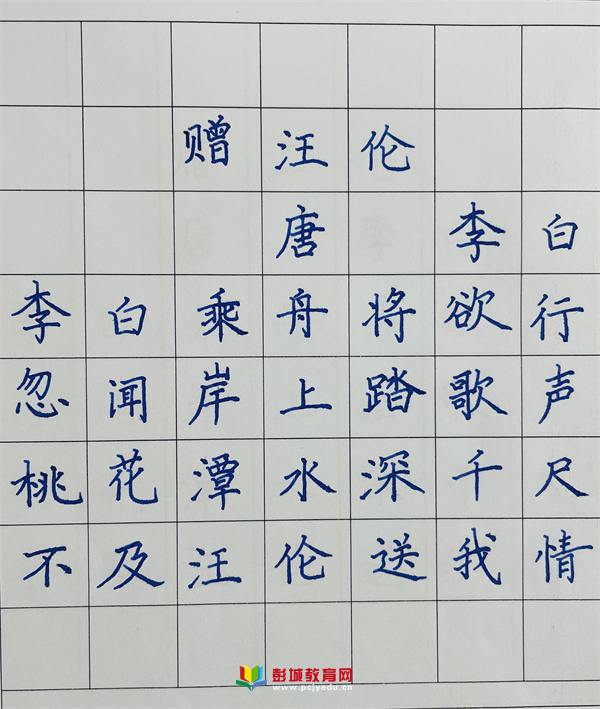 赠汪伦
唐 李白
李白乘舟将欲行
忽闻岸上踏歌声
桃花潭水深千尺
不及汪伦送我情
彭城教育网
www.pcjyedu.cn